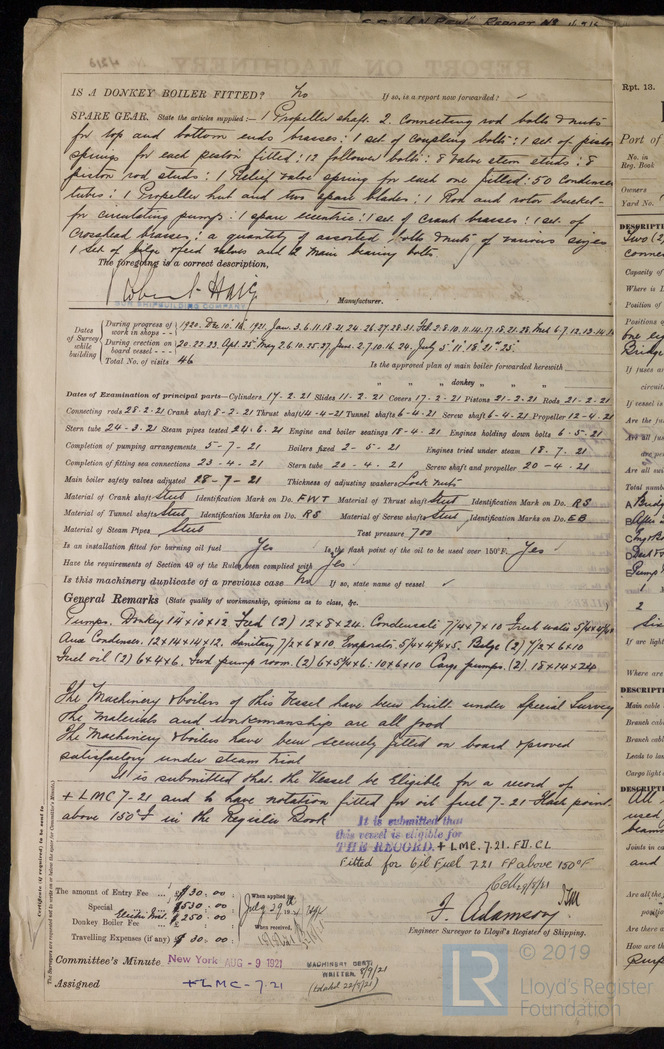 IS A DONKEY BOILER FITTED? No If so, is a report now forwarded? ✓
SPARE GEAR. State the articles supplied:— 1 Propeller shaft. 2 Connecting rod bolts & nuts
for top and bottom ends brasses: 1 set of coupling bolts: 1 set of piston
springs for each piston fitted: 12 follower bolts: 8 valve stem studs: 8
piston rod studs: 1 Relief valve spring for each one fitted: 50 Condenser
tubes: 1 Propeller hub and two spare blades: 1 Rod and rotor bucket
for circulating pump: 1 spare eccentric: 1 set of Crank brasses: 1 set of
Crosshead brasses: a quantity of assorted bolts & nuts of various sizes
1 set of bilge & feed valves and 2 main bearing bolts
The foregoing is a correct description,
Robert Haig
SUN SHIPBUILDING COMPANY
Manufacturer.
Dates of Survey while building
During progress of work in shops - - 1920. Dec 10. 16. 1921. Jan. 3. 6. 11. 18. 21. 24. 26. 27. 28. 31. Feb 2. 8. 10. 11. 14. 17. 18. 21. 28. Mar 6. 7. 12. 13. 14.
During erection on board vessel - - - 20. 22. 23. Apr. 25. May 2. 6. 10. 25. 27. June. 2. 7. 10. 16. 24. July 5. 11. 18. 21. 25.
Total No. of visits 46
Is the approved plan of main boiler forwarded herewith
" " " donkey " " "
Dates of Examination of principal parts—Cylinders 17-2-21 Slides 11-2-21 Covers 17-2-21 Pistons 21-2-21 Rods 21-2-21
Connecting rods 28-2-21 Crank shaft 8-2-21 Thrust shaft 14-4-21 Tunnel shafts 6-4-21 Screw shaft 6-4-21 Propeller 12-4-21
Stern tube 24-3-21 Steam pipes tested 24-6-21 Engine and boiler seatings 18-4-21 Engines holding down bolts 6-5-21
Completion of pumping arrangements 5-7-21 Boilers fixed 2-5-21 Engines tried under steam 18.7.21
Completion of fitting sea connections 23-4-21 Stern tube 20-4-21 Screw shaft and propeller 20-4-21
Main boiler safety valves adjusted 28-7-21 Thickness of adjusting washers Lock nuts
Material of Crank shaft Steel Identification Mark on Do. FWT Material of Thrust shaft Steel Identification Mark on Do. RS
Material of Tunnel shafts Steel Identification Marks on Do. RS Material of Screw shafts Steel Identification Marks on Do. EB
Material of Steam Pipes Steel Test pressure 700
Is an installation fitted for burning oil fuel Yes Is the flash point of the oil to be used over 150°F. Yes
Have the requirements of Section 49 of the Rules been complied with Yes
Is this machinery duplicate of a previous case No If so, state name of vessel ✓
General Remarks (State quality of workmanship, opinions as to class, &c.
Pumps. Donkey 14×10×12 Feed (2) 12×8×24. Condensate 7/4×7×10 Fresh water 5/4×4/4×
Aux Condenser. 12×14×14×12. Sanitary 7/2×6×10 Evaporator 5/4×4/4×5. Bilge (2) 7/2×6×10
Fuel oil (2) 6×4×6. Fwd pump room. (2) 6×5/4×6: 10×6×10 Cargo pumps. (2). 18×14×24
The Machinery & boilers of this Vessel have been built under Special Survey
the materials and workmanship are all good
The Machinery & boilers have been securely fitted on board & proved
satisfactory under steam trial
It is submitted that the Vessel be Eligible for a record of
+ LMC 7-21 and to have notation fitted for oil fuel 7-21 Flash point
above 150°F in the Register Book
It is submitted that
this vessel is eligible for
THE RECORD. + LMC. 7.21. FD. CL
Fitted for Oil Fuel 7.21 FP above 150°F
Certificate (if required) to be sent to
(The Surveyors are requested not to write on or below the space for Committee's Minute.)
The amount of Entry Fee ... $ 30.00
Special ... $530.00
Electric Inst. $ 250.00
Donkey Boiler Fee ... £
Travelling Expenses (if any) $ 30.00
When applied for,
July 29th
When received,
F. Adamson
Engineer Surveyor to Lloyd's Register of Shipping.
Committee's Minute New York AUG -9 1921
MACHINERY CERT.
WRITTEN. 8/9/21
Assigned +LMC-7.21
© 2019
LR
Lloyd's Register
Foundation
Rpt. 13.
Port of
No. in
Reg. Book
Owners
Yard No.
DESCRIPTI
Two (2)
connec
Capacity of
Where is
Position of
Positions o
one eg
Bridge
If fuses a
circuit
If vessel is
Are the fu
Are all fus
Are all swi
Total numbe
A Bridg
B After
C
D
E Pump
1
2
If are light
Where are
DESCRIPTI
Main cable
Branch cabl
Branch cabl
Leads to la
Cargo light
DESCRIPTI
All
used
beams
Joints in ca
and
Are all the
positio
Are there a
How are th